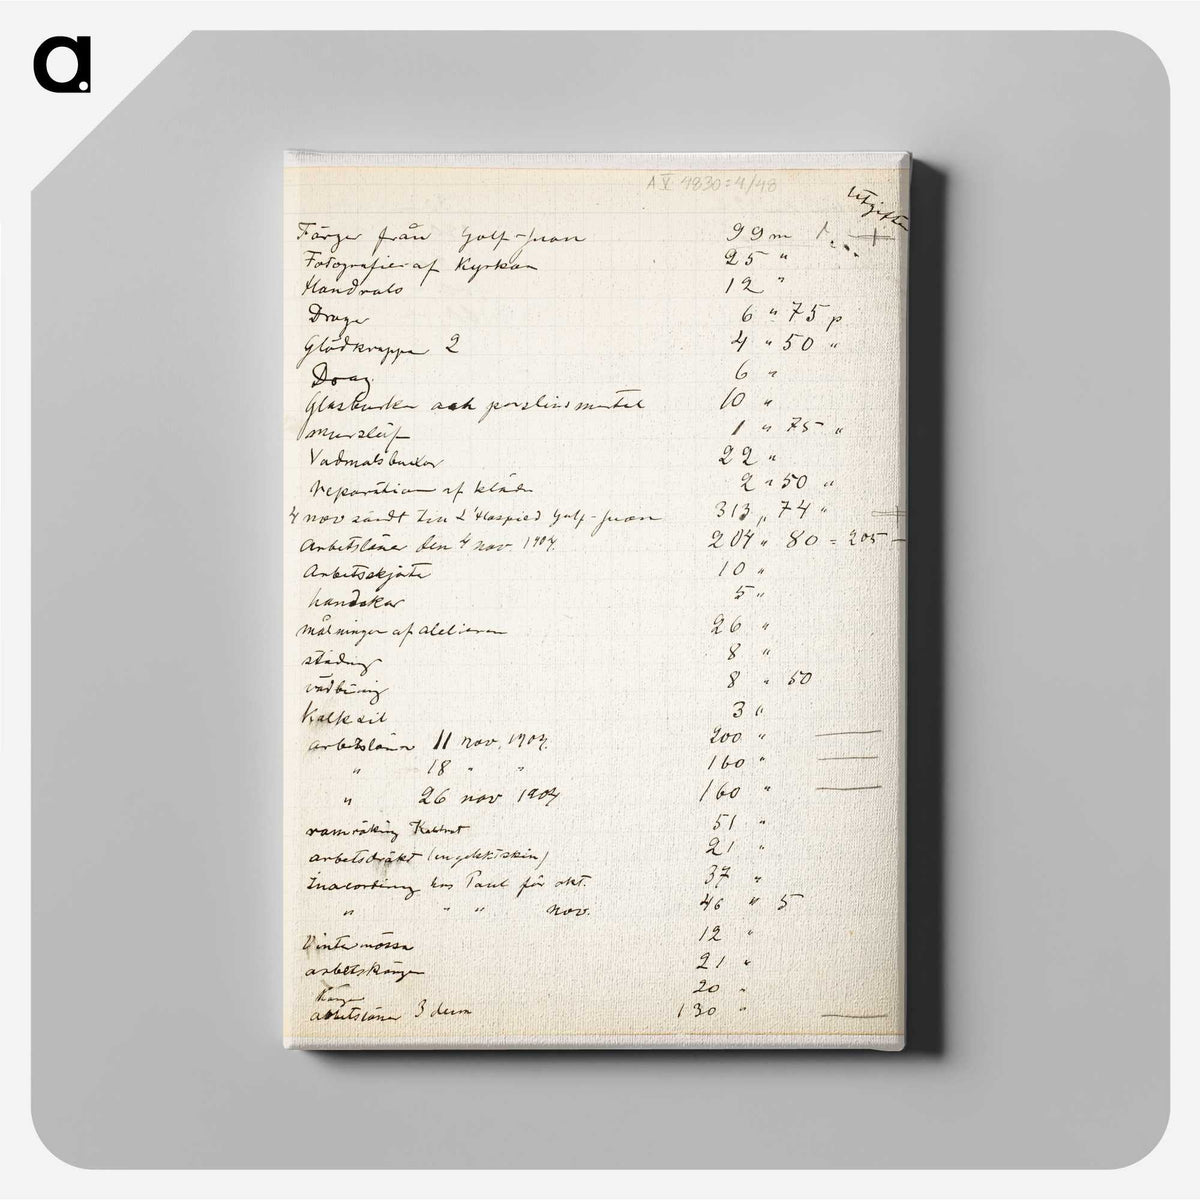 a.
A V 4830:4/48
Utgifter
Färger från Golf-Juan 99 m
Fotografier af Kyrkan 25 "
Handrala 12 "
Drager 6 " 75 p
Glödkroppar 2 4 " 50 "
Drag 6 "
Glasburkar och porslinsmortel 10 "
murslef 1 " 75 "
Vadmalsbuxor 22 "
reparation af kläder 2 " 50 "
4 nov sändt till Golf-Juan 313 " 74 "
Arbetslöner den 4 nov. 1904. 204 " 80 = 205 -
Arbetsskjorta 10 "
handskar 5 "
målningen af atelieren 26 "
städning 8 "
vädring 8 " 50
Kalksil 3 "
arbetslöner 11 nov. 1904. 200 "
" 18 " " 160 "
" 26 nov 1904 160 "
51 "
arbetsdräkt 21 "
hos Paul för okt. 37 "
" " " nov. 46 " 5
Vintermössa 12 "
arbetskängor 21 "
Kängor 20 "
arbetslöner 3 dem 130 "